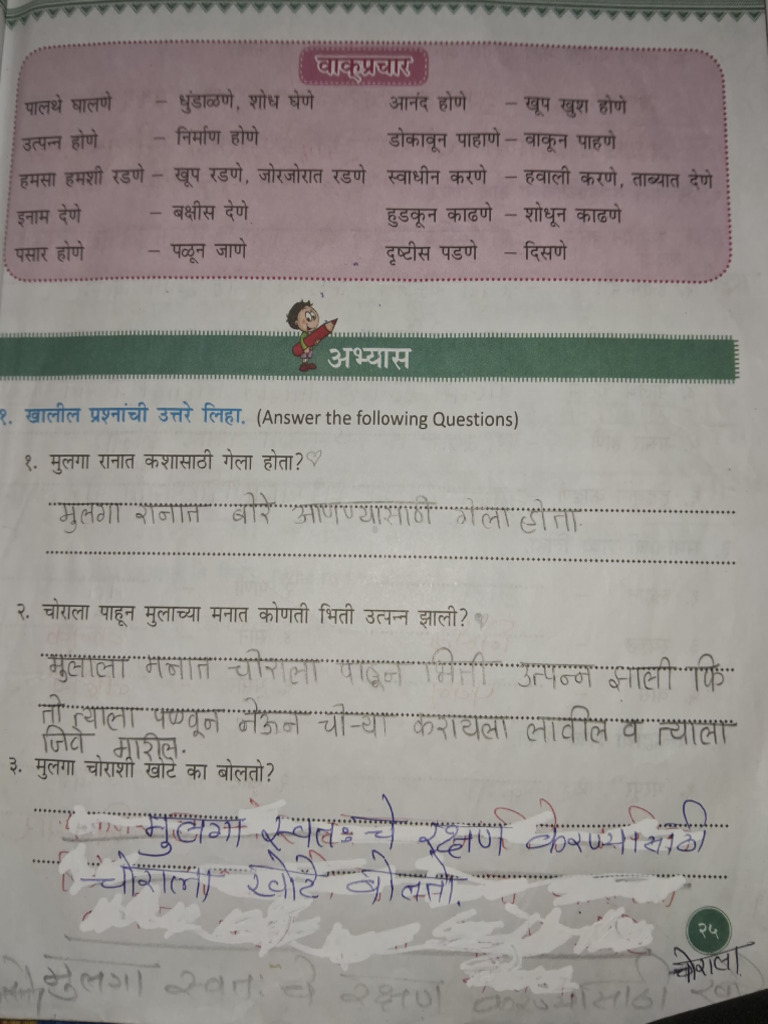 वाक्प्रचार
पालथे घालणे – धुंडाळणे, शोध घेणे आनंद होणे – खूप खुश होणे
उत्पन्न होणे – निर्माण होणे डोकावून पाहाणे – वाकून पाहणे
हमसा हमशी रडणे – खूप रडणे, जोरजोरात रडणे स्वाधीन करणे – हवाली करणे, ताब्यात देणे
इनाम देणे – बक्षीस देणे हुडकून काढणे – शोधून काढणे
पसार होणे – पळून जाणे दृष्टीस पडणे – दिसणे
अभ्यास
१. खालील प्रश्नांची उत्तरे लिहा. (Answer the following Questions)
१. मुलगा रानात कशासाठी गेला होता?
मुलगा रानात बोरे आणण्यासाठी गेला होता.
२. चोराला पाहून मुलाच्या मनात कोणती भिती उत्पन्न झाली?
मुलाला मनात चोराला पाहून भिती उत्पन्न झाली कि
तो त्याला पळवून नेऊन चोऱ्या करायला लावील व त्याला
जिवे मारील.
३. मुलगा चोराशी खोटे का बोलतो?
मुलगा स्वतःचे रक्षण करण्यासाठी
चोराला खोटे बोलतो.
२५
चोराला
मुलगा स्वतःचे रक्षण करण्यासाठी